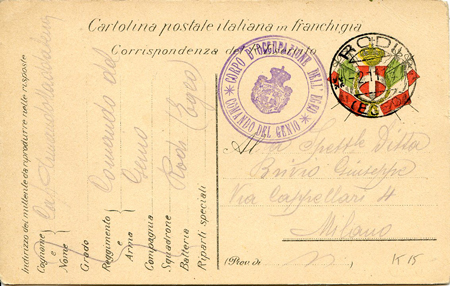 Cartolina postale italiana in franchigia
Corrispondenza del R. Esercito
CORPO D'OCCUPAZIONE DELL'EGEO
COMANDO DEL GENIO
RODI
(EGEO)
Indirizzo del mittente da riprodurre nelle risposte
Cognome e Nome
Grado
Reggimento e Arma Comando del Genio
Compagnia
Squadrone Rodi (Egeo)
Batteria
Riparti speciali
Al Spettle Ditta
Brivio Giuseppe
Via Cappellari 4
Milano
(Prov. di